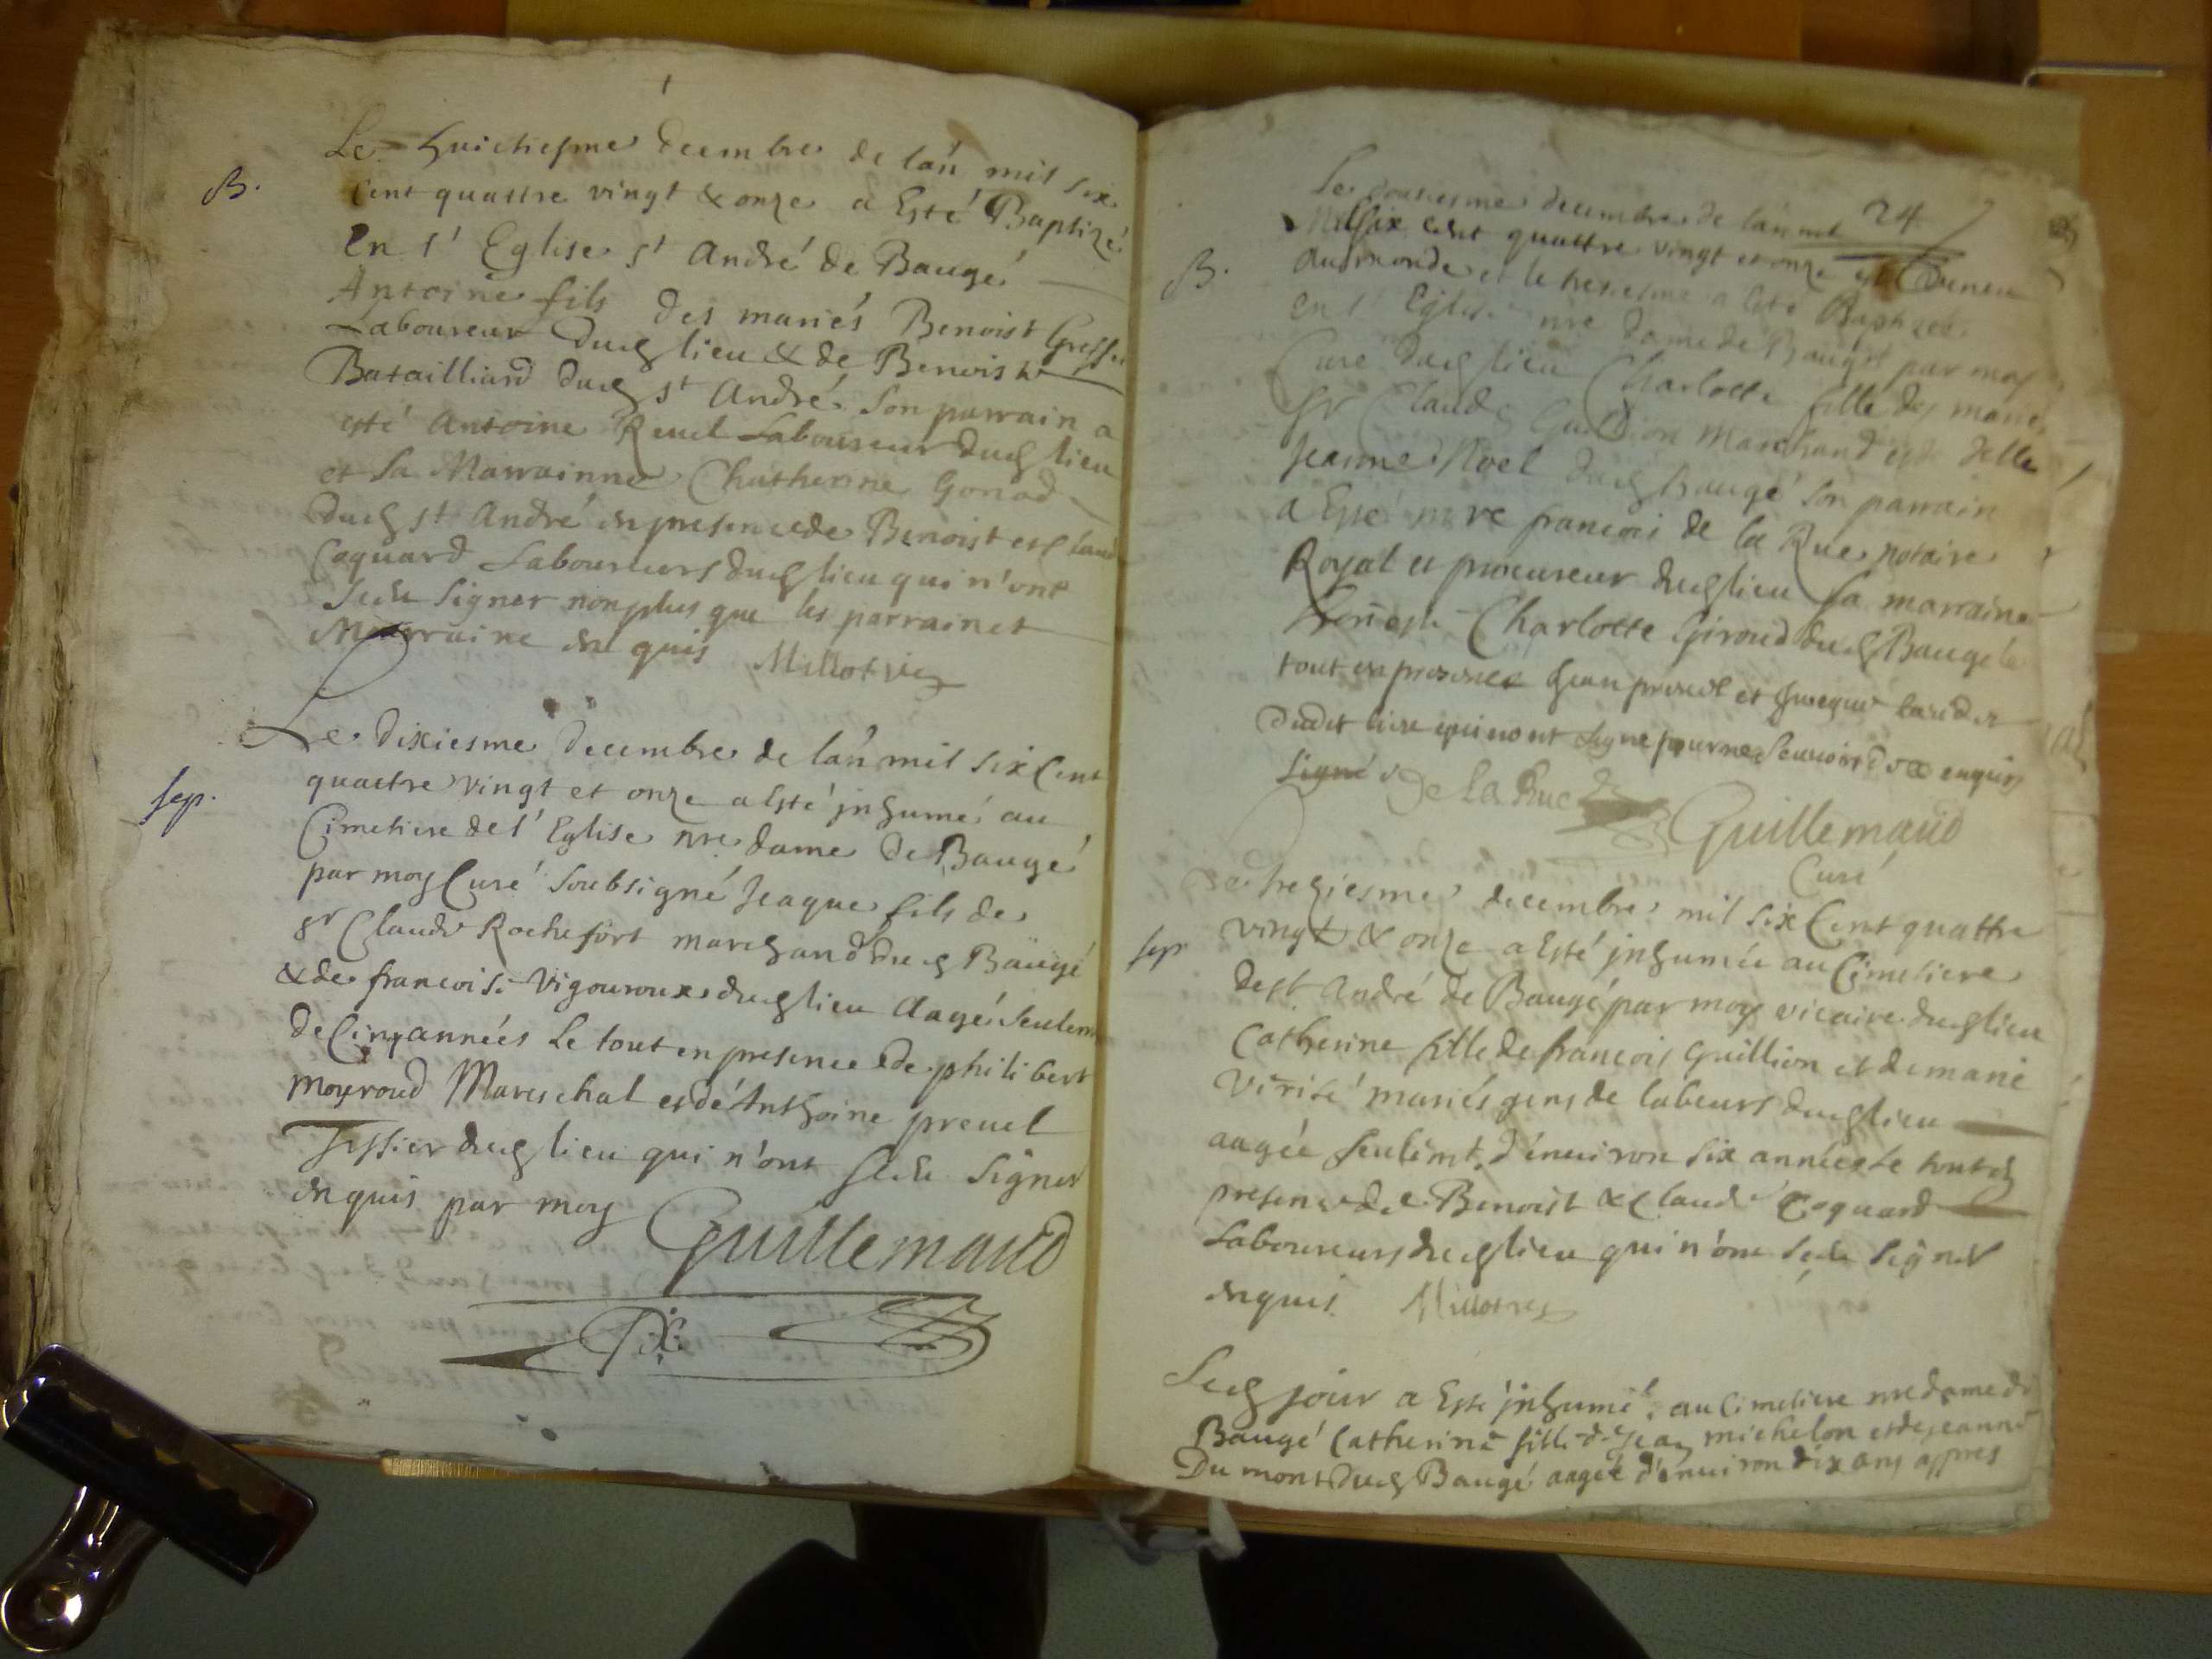 B.
Le huictiesme decembre de l'an mil six
cent quattre vingt & onze a Esté Baptizé
En l' Eglise st André de Baugé
Antoine fils des mariés Benoist
Laboureur dud lieu & de Benoiste
Batailliard dud st André son parrain a
esté Antoine Revel Laboureur dud lieu
et Sa Marrainne Chatherine Gonod
dud st André en presence de Benoist et Claud
Coquard Laboureurs dud lieu qui n'ont
sceu signer non plus que les parrain et
Marraine enquis Millot vic
sep.
Le dixiesme decembre de l'an mil six Cent
quattre vingt et onze a Esté inhumé au
Cimetiere de l' Eglise nre dame de Baugé
par moy Curé Soubsigné Jeaque fils de
sr Claude Rochefort marchand dud Baugé
& de francoise Vigouroux dud lieu Aagé seulemt
de Cinq années Le tout en presence de philibert
moyroud Mareschal et de Anthoine prevel
Tissier dud lieu qui n'ont sceu Signer
enquis par moy Guillemaud
24
B.
Le douziesme decembre de l'an mil
Mil six cent quattre vingt et onze est venue
au monde et le treziesme a esté Baptizée
en l' Eglise nre dame de Baugé par moy
Curé dud lieu Charlotte fille des mariés
sr Claude Guillion Marchand et de delle
Jeanne Noel dud Baugé son parrain
a Esté mre francois de la Rue notaire
Royal et procureur dud lieu sa marraine
honeste Charlotte Giroud dud Baugé le
tout en presence Jean prevel et
dudit lieu qui nont signe pour ne scavoir de ce enquis
signé De la Rue Guillemaud
Curé
sep
Le treziesme decembre mil six Cent quattre
vingt & onze a Esté inhumée au Cimetiere
de st André de Baugé par moy vicaire dud lieu
Catherine fille de francois Guillion et de marie
Verité mariés gens de labeurs dud lieu
aagée seulemt d'environ six années le tout en
presence de Benoist & Claude Coquard
Laboureurs dud lieu qui n'ont sceu signer
enquis. Millot vic
Led jour a Esté inhumé au Cimetiere nre dame de
Baugé Catherine fille de Jean michelon et de jeanne
Du mont dud Baugé aagée d'environ dix ans appres